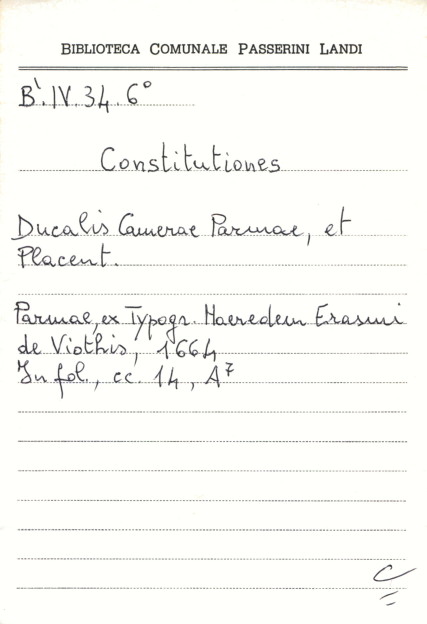 BIBLIOTECA COMUNALE PASSERINI LANDI
B'.IV.34.6°
Constitutiones
Ducalis Camerae Parmae, et
Placent.
Parmae, ex Typogr. Haeredem Erasmi
de Viothis, 1664
In fol., cc. 14, A⁷
C